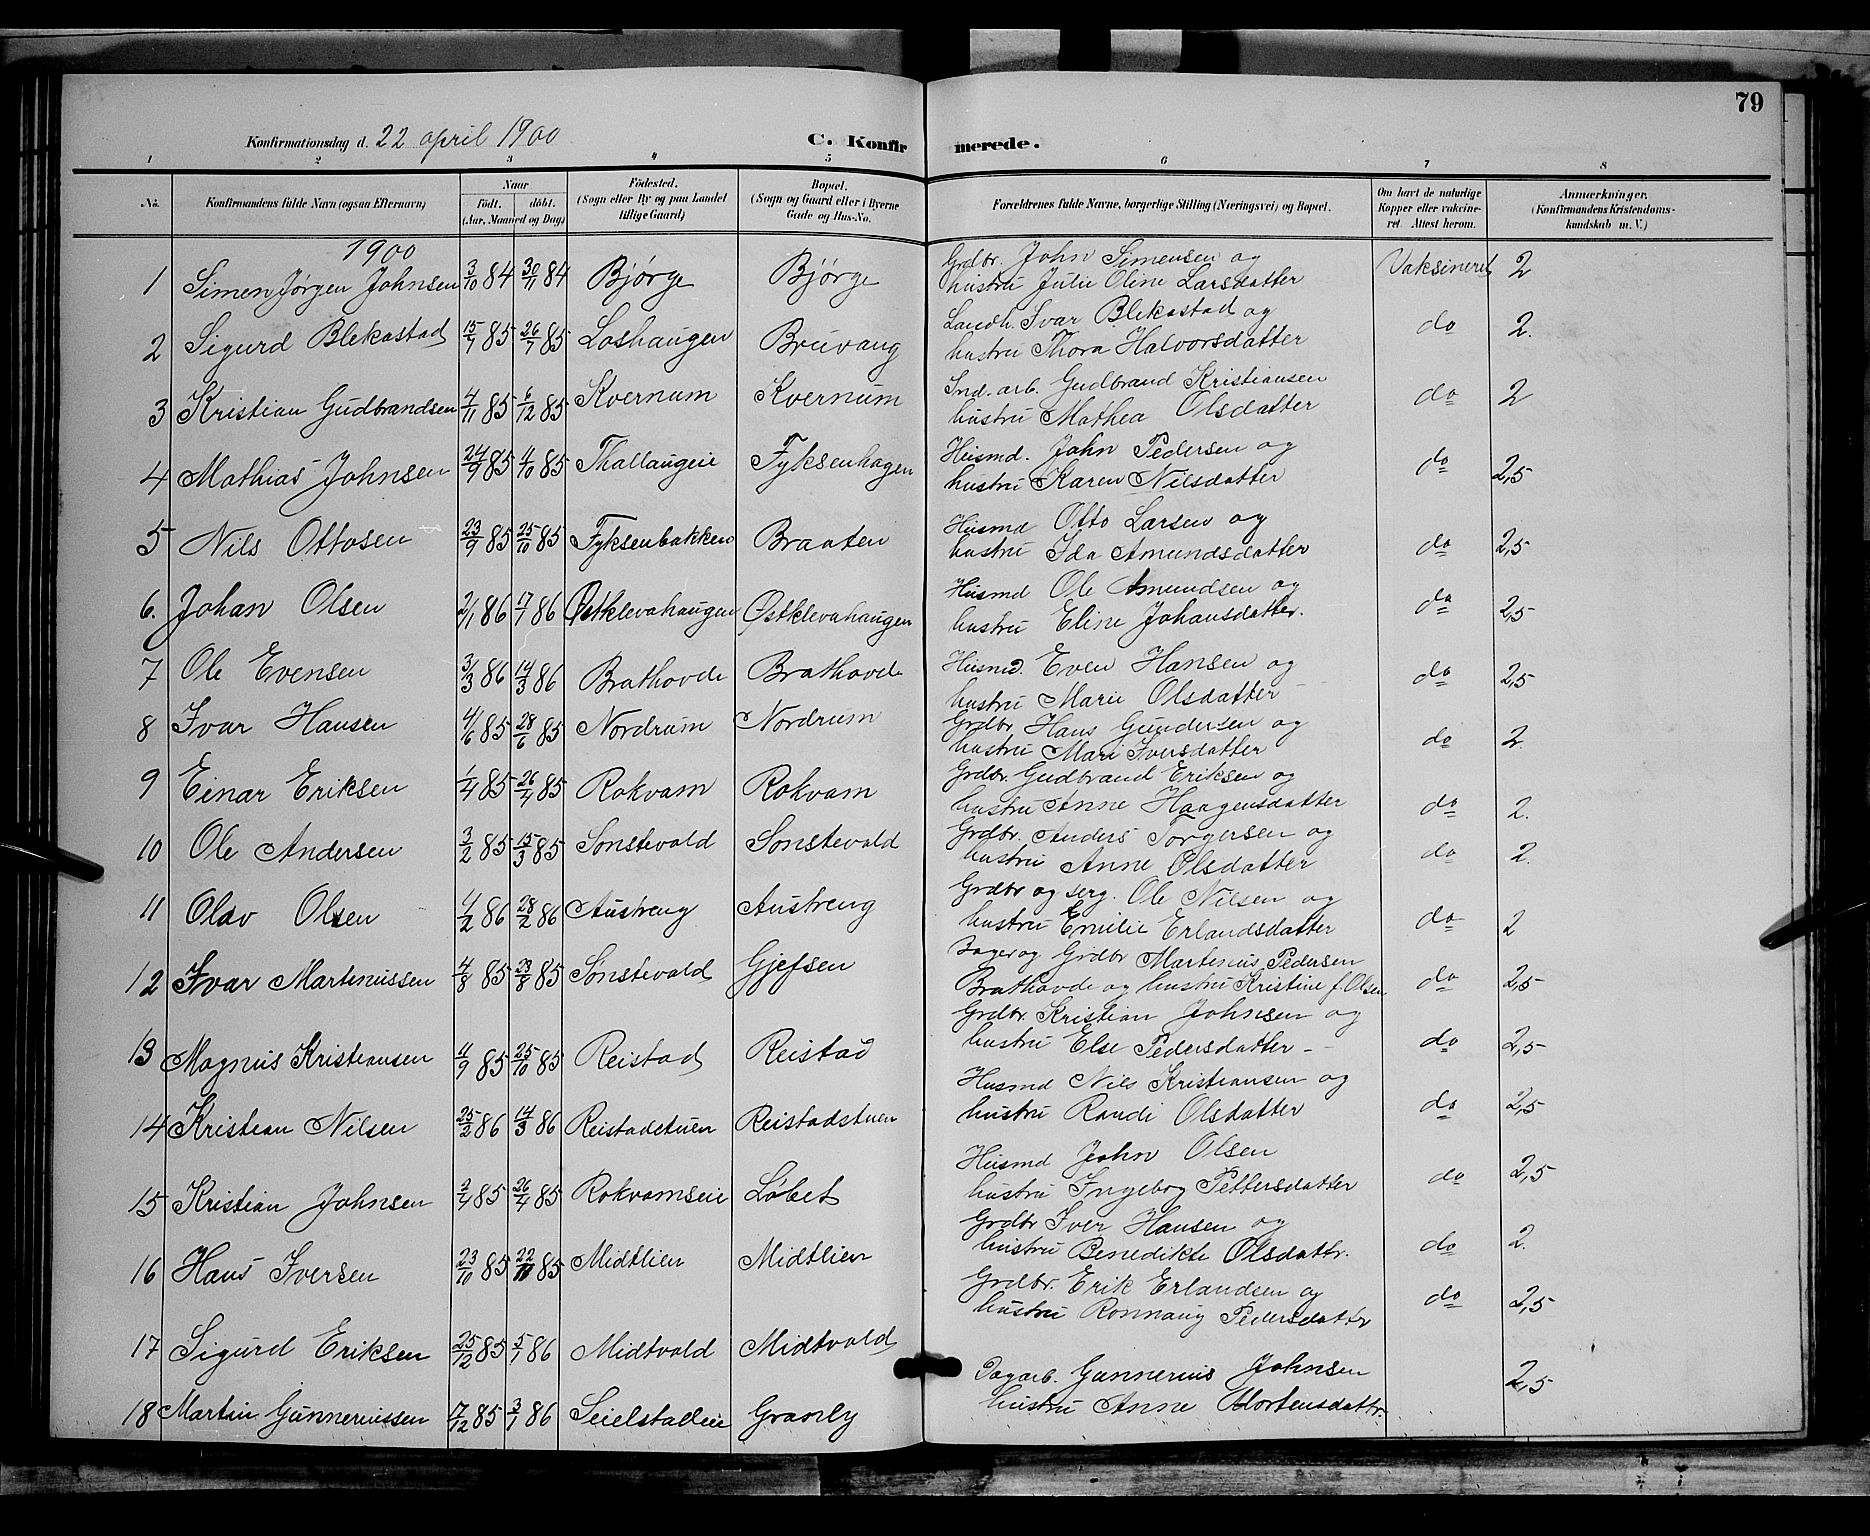 79
Konfirmationsdag d. 22 april 1900 C. Konfirmerede.
1 2 3 4 5 6 7 8
No. Konfirmandens fulde Navn (ogsaa Efternavn) Naar födt. döbt. (Aar, Maaned og Dag) Födested. (Sogn eller By og paa Landet tillige Gaard) Bopæl. (Sogn og Gaard eller i Byerne Gade og Hus-No. Forældrenes fulde Navne, borgerlige Stilling (Næringsvei) og Bopæl. Om havt de naturlige Kopper eller vakcineret. Attest herom. Anmærkninger. (Konfirmandens Kristendomskundskab m. V.)
1900
1 Simen Jørgen Johnsen 3/10 84 30/11 84 Bjørge Bjørge Grdbr. John Simensen og
hustru Julie Oline Larsdatter Vaksineret 2
2 Sigurd Blekastad 15/7 85 26/7 85 Loshaugen Bruvang Landh. Ivar Blekastad og
hustru Thora Halvorsdatter do 2.
3 Kristian Gudbrandsen 4/11 85 6/12 85 Kvernum Kvernum Ind. arb. Gudbrand Kristiansen
hustru Mathea Olsdatter do 2
4 Mathias Johnsen 24/9 85 4/10 85 Thallaugeie Fyksenhagen Husmd. John Pedersen og
hustru Karen Nilsdatter do 2,5
5 Nils Ottosen 23/9 85 25/10 85 Fyksenbakken Braaten Husmd Otto Larsen og
hustru Ida Amundsdatter do 2,5
6. Johan Olsen 2/1 86 17/1 86 Østklevahaugen Østklevahaugen Husmd Ole Amundsen og
hustru Eline Johansdatter. do 2,5
7 Ole Evensen 3/3 86 14/3 86 Brathovde Brathovde Husmd. Even Hansen og
hustru Marie Olsdatter do 2,5
8 Ivar Hansen 4/6 85 28/6 85 Nordrum Nordrum Grdbr Hans Gundersen og
hustru Mari Iversdatter do 2.
9 Einar Eriksen 1/4 85 26/4 85 Rokvam Rokvam Grdbr. Gudbrand Eriksen og
hustru Anne Haagensdatter do 2.
10 Ole Andersen 3/2 85 15/3 85 Sonstevold Sonstevold Grdbr. Anders Torgersen og
hustru Anne Olsdatter do 2.
11 Olav Olsen 4/2 86 28/2 86 Austreng Austreng Grdbr og serg. Ole Nilsen og
hustru Emilie Erlandsdatter do 2
12 Ivar Martinussen 4/8 85 23/8 85 Sonstevold Gjefsen Bager og Grdbr Martinus Pedersen
Brathovde og hustru Kristine f. Olsen do 2,5
13 Magnus Kristiansen 4/9 85 25/10 85 Reistad Reistad Grdbr. Kristian Johnsen og
hustru Else Pedersdatter do 2,5
14 Kristian Nilsen 25/2 86 14/3 86 Reistadstuen Reistadstuen Husmd Nils Kristiansen og
hustru Randi Olsdatter do 2,5
15 Kristian Johnsen 2/4 85 26/4 85 Rokvamseie Løbet Husmd John Olsen
hustru Ingebog Pettersdatter do 2,5
16 Hans Iversen 23/10 85 22/11 85 Midtlien Midtlien Grdbr Iver Hansen og
hustru Benedikte Olsdattr. do 2.
17 Sigurd Eriksen 25/12 85 5/1 86 Midtvold Midtvold Grdbr. Erik Erlandsen og
hustru Ronnaug Pedersdatter do 2,5
18 Martin Gunneriussen 7/12 85 3/1 86 Seielstadeie Granly Dagarb. Gunnerius Johnsen
hustru Anne Mortensdattr. 2,5